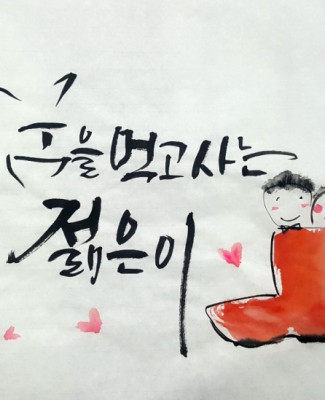 꿈을 먹고 사는
젊은이